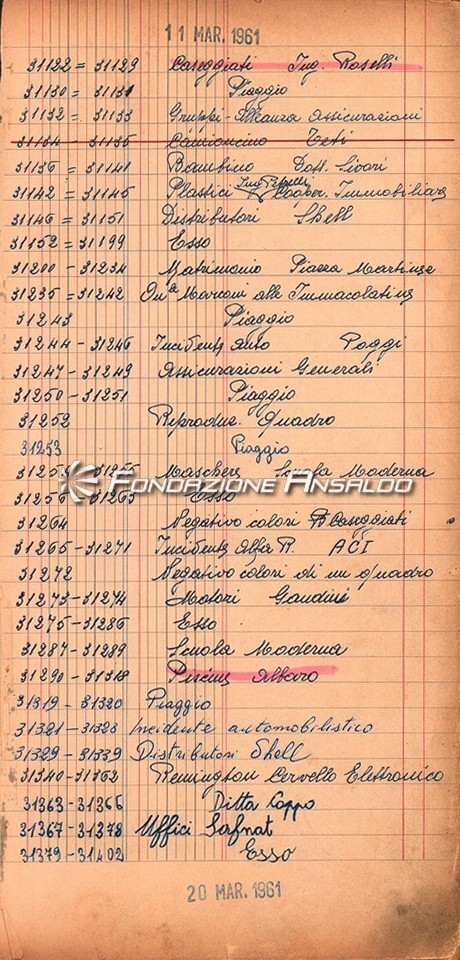 11 MAR. 1961
31122 = 31129 Caseggiati Ing. Roselli
31130 = 31131 Piaggio
31132 = 31133 Gruppi - Alleanza Assicurazioni
31134 - 31135 Camioncino Teti
31136 = 31141 Bambino Dott. Sivori
31142 = 31145 Plastici Ing. Cooper. Immobiliare
31146 = 31151 Distributori Shell
31152 = 31199 Esso
31200 - 31234 Matrimonio Piazza Martinez
31235 = 31242 On.a Marconi alle Immacolatine
31243 Piaggio
31244 - 31246 Incidente auto Poggi
31247 - 31249 Assicurazioni Generali
31250 - 31251 Piaggio
31252 Reproduz. Quadro
31253 Piaggio
31254 - 31255 Maschere Scuola Moderna
FONDAZIONE ANSALDO
31256 - 31263 Esso
31264 Negativo colori Caseggiati
31265 - 31271 Incidente Alfa R. ACI
31272 Negativo colori di un quadro
31273 - 31274 Motori Gaudini
31275 - 31286 Esso
31287 - 31289 Scuola Moderna
31290 - 31318 Piscine Albaro
31319 - 31320 Piaggio
31321 - 31328 Incidente automobilistico
31329 - 31339 Distributori Shell
31340 - 31362 Remington Cervello Elettronico
31363 - 31366 Ditta Coppo
31367 - 31378 Uffici Safnat
31379 - 31402 Esso
20 MAR. 1961